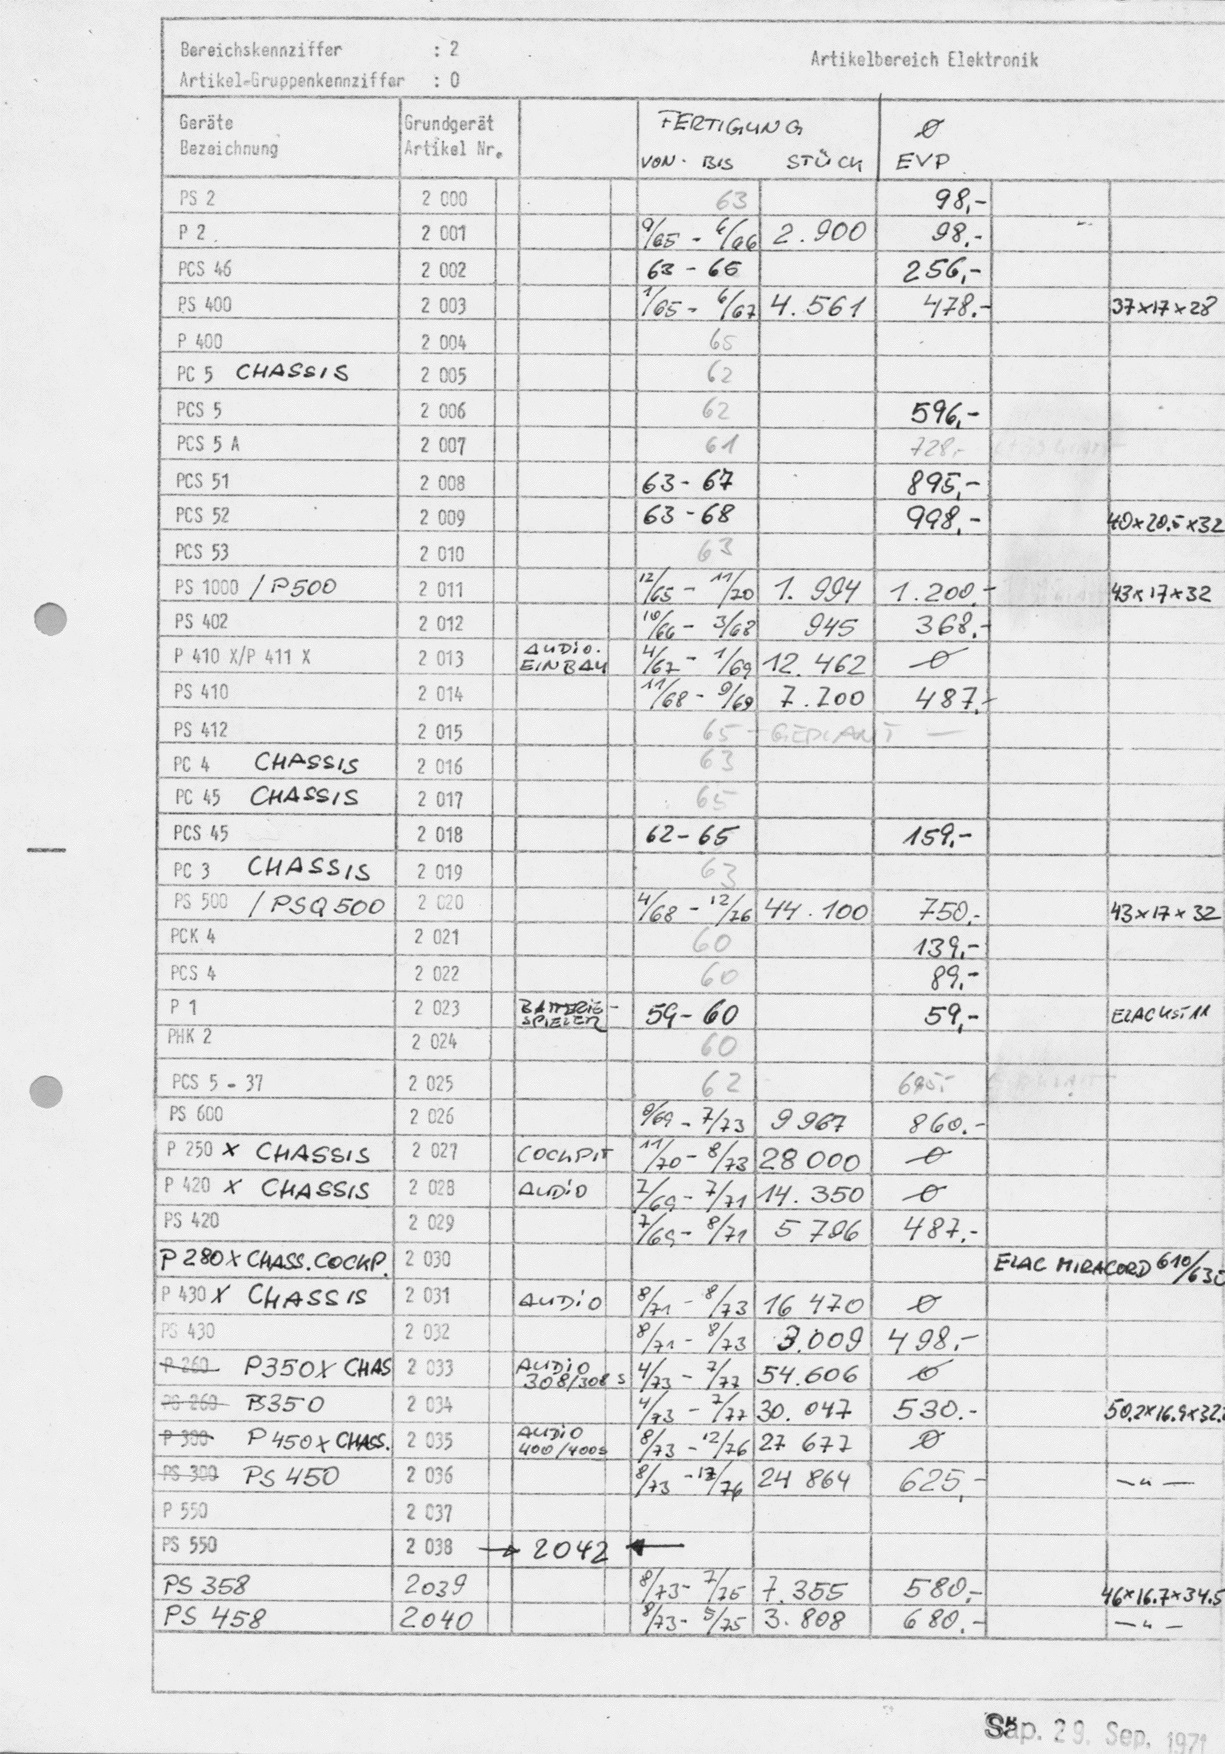 Bereichskennziffer : 2 Artikelbereich Elektronik
Artikel-Gruppenkennziffer : 0
Geräte Bezeichnung Grundgerät Artikel Nr. FERTIGUNG VON - BIS STÜCK Ø EVP
PS 2 2 000 63 98,-
P 2 2 001 9/65 - 6/66 2.900 98,-
PCS 46 2 002 63 - 65 256,-
PS 400 2 003 1/65 - 6/67 4.561 478.- 37x17x28
P 400 2 004 65
PC 5 CHASSIS 2 005 62
PCS 5 2 006 62 596,-
PCS 5 A 2 007 61 728,-
PCS 51 2 008 63 - 67 895,-
PCS 52 2 009 63 - 68 998,- 40x20.5x32
PCS 53 2 010 63
PS 1000 / P500 2 011 12/65 - 11/70 1.994 1.200,- 43x17x32
PS 402 2 012 10/66 - 3/68 945 368,-
P 410 X/P 411 X 2 013 AUDIO. EINBAU 4/67 - 1/69 12.462 Ø
PS 410 2 014 11/68 - 9/69 7.700 487,-
PS 412 2 015 65 - GEPLANT —
PC 4 CHASSIS 2 016 63
PC 45 CHASSIS 2 017 65
PCS 45 2 018 62 - 65 159,-
PC 3 CHASSIS 2 019 63
PS 500 / PSQ500 2 020 4/68 - 12/76 44.100 750,- 43x17x32
PCK 4 2 021 60 139,-
PCS 4 2 022 60 89,-
P 1 2 023 BATTERIE- SPIELER 59 - 60 59,-
PHK 2 2 024 60
PCS 5 - 37 2 025 62
PS 600 2 026 9/69 - 7/73 9967 860.-
P 250 X CHASSIS 2 027 COCKPIT 11/70 - 8/73 28000 Ø
P 420 X CHASSIS 2 028 AUDIO 7/69 - 7/71 14.350 Ø
PS 420 2 029 7/69 - 8/71 5796 487,-
P 280X CHASS. COCKP. 2 030 ELAC MIRACORD 610/630
P 430 X CHASSIS 2 031 AUDIO 8/71 - 8/73 16470 Ø
PS 430 2 032 8/71 - 8/73 3.009 498,-
P 260 P350X CHAS 2 033 AUDIO 308/308 S 4/73 - 7/77 54.606 Ø
PS 260 PS350 2 034 4/73 - 7/77 30.047 530.- 50.2x16.9x32.
P 300 P450X CHASS. 2 035 AUDIO 400/400S 8/73 - 12/76 27677 Ø
PS 300 PS 450 2 036 8/73 - 12/76 24864 625,- — " —
P 550 2 037
PS 550 2 038 → 2042 ←
PS 358 2039 8/73 - 7/75 7.355 580,- 46x16.7x34.5
PS 458 2040 8/73 - 5/75 3.808 680.- — " —
29. Sep. 1971